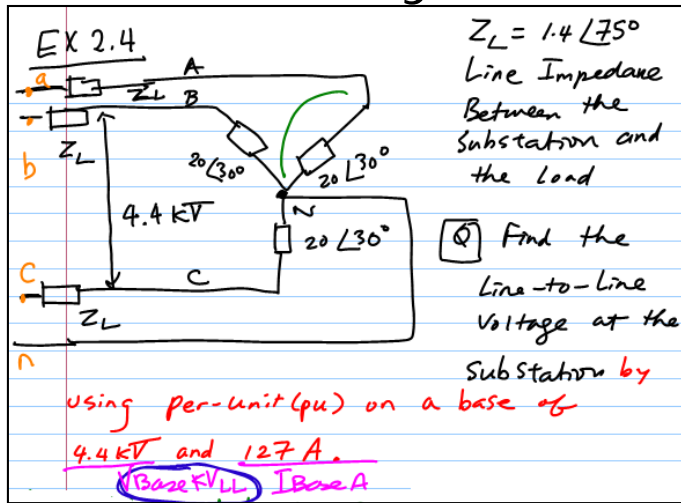 EX 2.4
a
A
ZL
B
ZL
b
20∠30°
20∠30°
4.4 kV
N
20∠30°
C
C
ZL
n
ZL = 1.4∠75°
Line Impedane
Between the
Substation and
the Load
Q Find the
Line-to-Line
Voltage at the
Substation by
using per-unit(pu) on a base of
4.4 kV and 127 A.
VBase KVLL IBase A